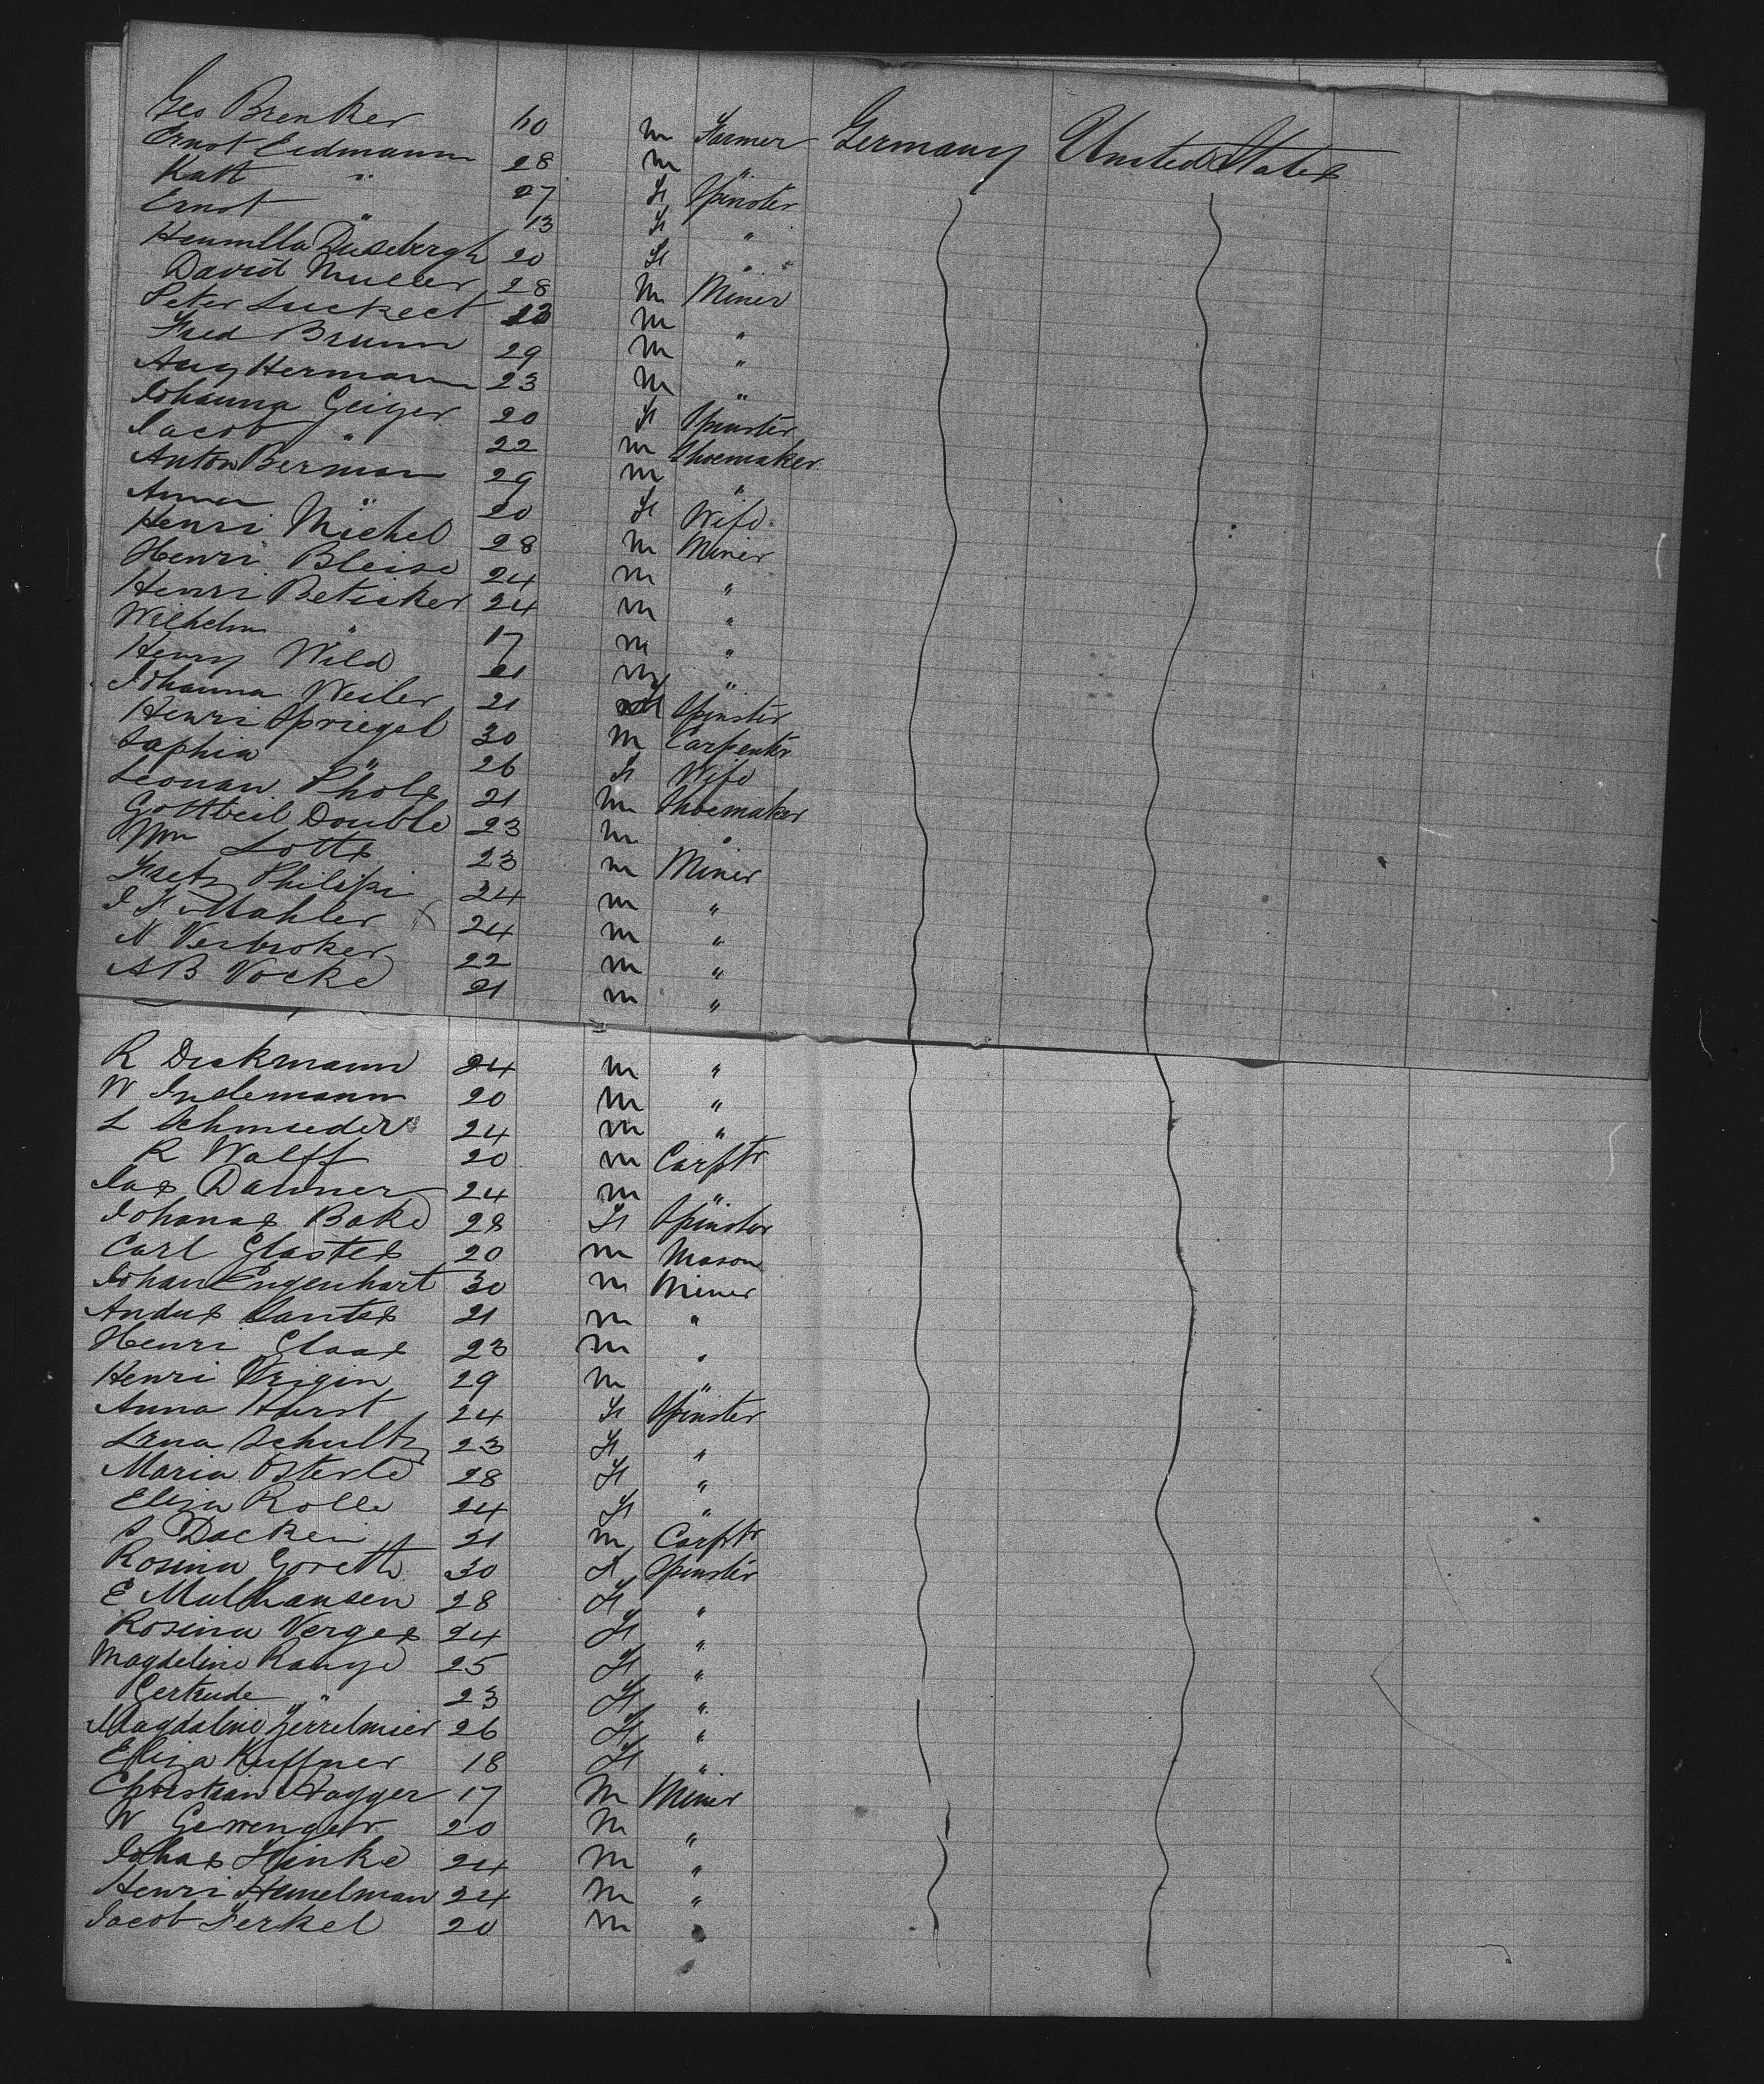 Geo Brenker 60 m Farmer Germany United States
Ernst Erdmann 28 m "
Kath " 27 F Spinster
Ernst " 13 F "
Dusebergh 20 F "
David Muller 28 m Miner
Peter Luckect m "
Fred Brunn 29 m "
Aug Hermann 23 m "
Johanna Geiger 20 F Spinster
Jacob " 22 m Shoemaker
Anton Berman 29 m "
Anna " 20 F Wife
Henri Michel 28 m Miner
Henri Bleise 24 m "
Henri Beticker 24 m "
Wilhelm " 17 m "
Henry Wild 21 m "
Johanna Weiler 21 F Spinster
Henri Spriegel 30 m Carpenter
Saphia " 26 F Wife
Leonan Phols 21 m Shoemaker
Gottbeil Double 23 m "
Wm Lotts 23 m Miner
Fretz Philipi 24 m "
J F Mahler x 24 m "
N Verbroker 22 m "
A B Vocke 21 m "
R Diekmann 24 m "
W Indemann 20 m "
L Schmieder 24 m "
R Walff 20 m Carptr
Jas Danner 24 m "
Johanas Bake 28 F Spinster
Carl Glastes 20 m Mason
Johan Engenhart 30 m Miner
Andus Lantss 21 m "
Henri Glaas 23 m "
Henri Wrigin 29 m "
Anna Hurst 24 F Spinster
Lena Schultz 23 F "
Maria Osterle 28 F "
Eliza Rolle 24 F "
S Dacken 21 m Carptr
Rosina Goreth 30 F Spinster
E Mulhansen 28 F "
Rosina Verges 24 F "
Magdeline Range 25 F "
Gertrude " 23 F "
Magdaline Zerrelmier 26 F "
Eliza Kuffner 18 F "
Christian Hagger 17 m Miner
W Gerrenger 20 m "
Johas Hinke 24 m "
Henri Hunelman 24 m "
Jacob Ferkel 20 m "